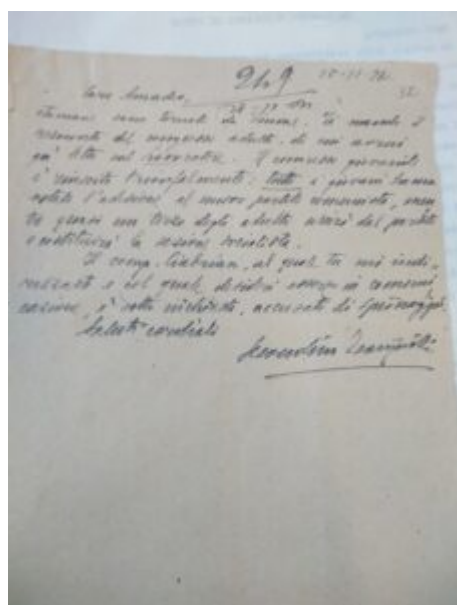 249
Caro Amadeo,
sono tornato da Fiume. Ti mando il
resoconto del congresso adulti, di cui avrai
già letto nel Lavoratore. Il congresso giovanile
è riuscito trionfalmente: tutti i giovani hanno
votato l'adesione al nuovo partito comunista, men-
tre quasi un terzo degli adulti uscirà dal partito
e costituirà la sezione socialista.
Il comp. Ciabrian, al quale tu mi indi-
rizzasti e col quale desideri essere in comuni-
cazione, è sotto inchiesta, accusato di spionaggio.
Saluti cordiali
Secondino